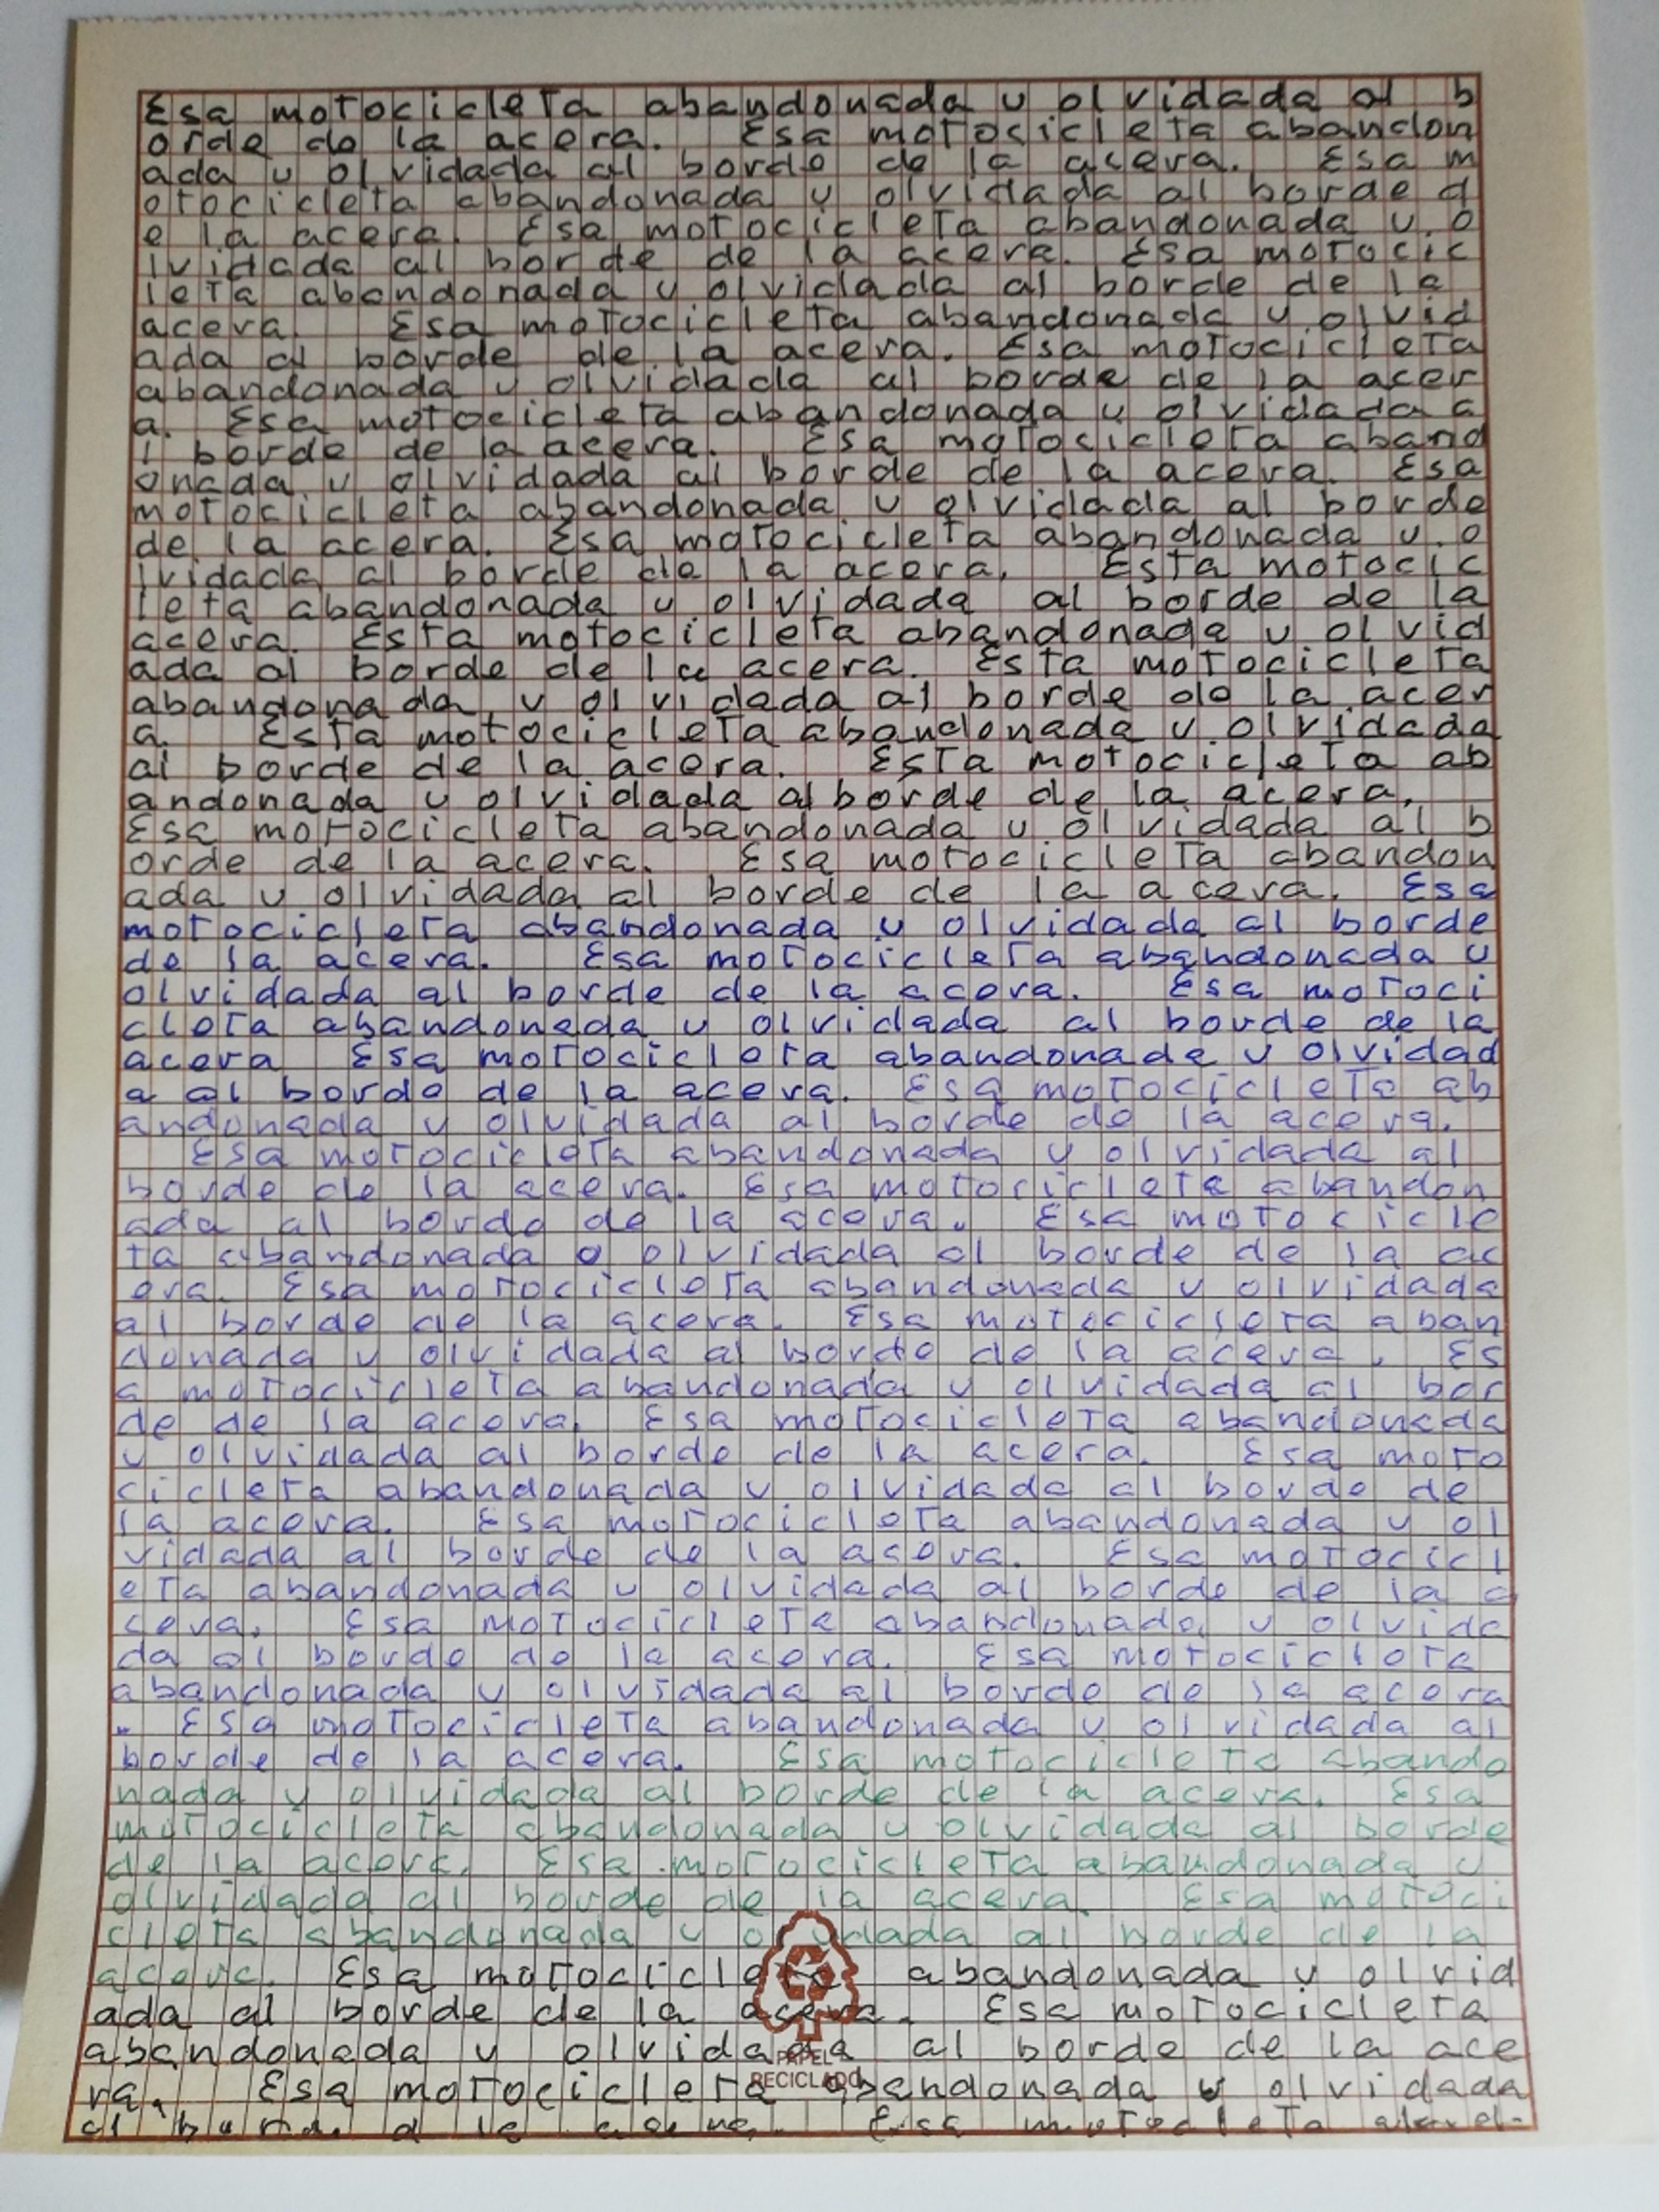 Esa motocicleta abandonada y olvidada al b
orde de la acera. Esa motocicleta abandon
ada y olvidada al borde de la acera. Esa m
otocicleta abandonada y olvidada al borde d
e la acera. Esa motocicleta abandonada y o
lvidada al borde de la acera. Esa motocic
leta abandonada y olvidada al borde de la
acera. Esa motocicleta abandonada y olvid
ada al borde de la acera. Esa motocicleta
abandonada y olvidada al borde de la acer
a. Esa motocicleta abandonada y olvidada a
l borde de la acera. Esa motocicleta aband
onada y olvidada al borde de la acera. Esa
motocicleta abandonada y olvidada al borde
de la acera. Esa motocicleta abandonada y o
lvidada al borde de la acera. Esta motocic
leta abandonada y olvidada al borde de la
acera. Esta motocicleta abandonada y olvid
ada al borde de la acera. Esta motocicleta
abandonada y olvidada al borde de la acer
a. Esta motocicleta abandonada y olvidada
al borde de la acera. Esta motocicleta ab
andonada y olvidada al borde de la acera.
Esa motocicleta abandonada y olvidada al b
orde de la acera. Esa motocicleta abandon
ada y olvidada al borde de la acera. Esa
motocicleta abandonada y olvidada al borde
de la acera. Esa motocicleta abandonada y
olvidada al borde de la acera. Esa motoci
cleta abandonada y olvidada al borde de la
acera Esa motocicleta abandonada y olvidad
a al borde de la acera. Esa motocicleta ab
andonada y olvidada al borde de la acera.
Esa motocicleta abandonada y olvidada al
borde de la acera. Esa motocicleta abandon
ada al borde de la acera. Esa motocicle
ta abandonada o olvidada al borde de la ac
era. Esa motocicleta abandonada y olvidada
al borde de la acera. Esa motocicleta aban
donada y olvidada al borde de la acera. Es
a motocicleta abandonada y olvidada al bor
de de la acera. Esa motocicleta abandonada
y olvidada al borde de la acera. Esa moto
cicleta abandonada y olvidada al borde de
la acera. Esa motocicleta abandonada y ol
vidada al borde de la acera. Esa motocicl
eta abandonada y olvidada al borde de la a
cera. Esa motocicleta abandonada y olvida
da al borde de la acera. Esa motocicleta
abandonada y olvidada al borde de la acera
. Esa motocicleta abandonada y olvidada al
borde de la acera. Esa motocicleta abando
nada y olvidada al borde de la acera. Esa
motocicleta abandonada y olvidada al borde
de la acera. Esa motocicleta abandonada y
olvidada al borde de la acera. Esa motoci
cleta abandonada y olvidada al borde de la
acera. Esa motocicleta abandonada y olvid
ada al borde de la acera. Esa motocicleta
abandonada y olvidada al borde de la ace
PAPEL
ra. Esa motocicleta abandonada y olvidada
RECICLADO
al Esa